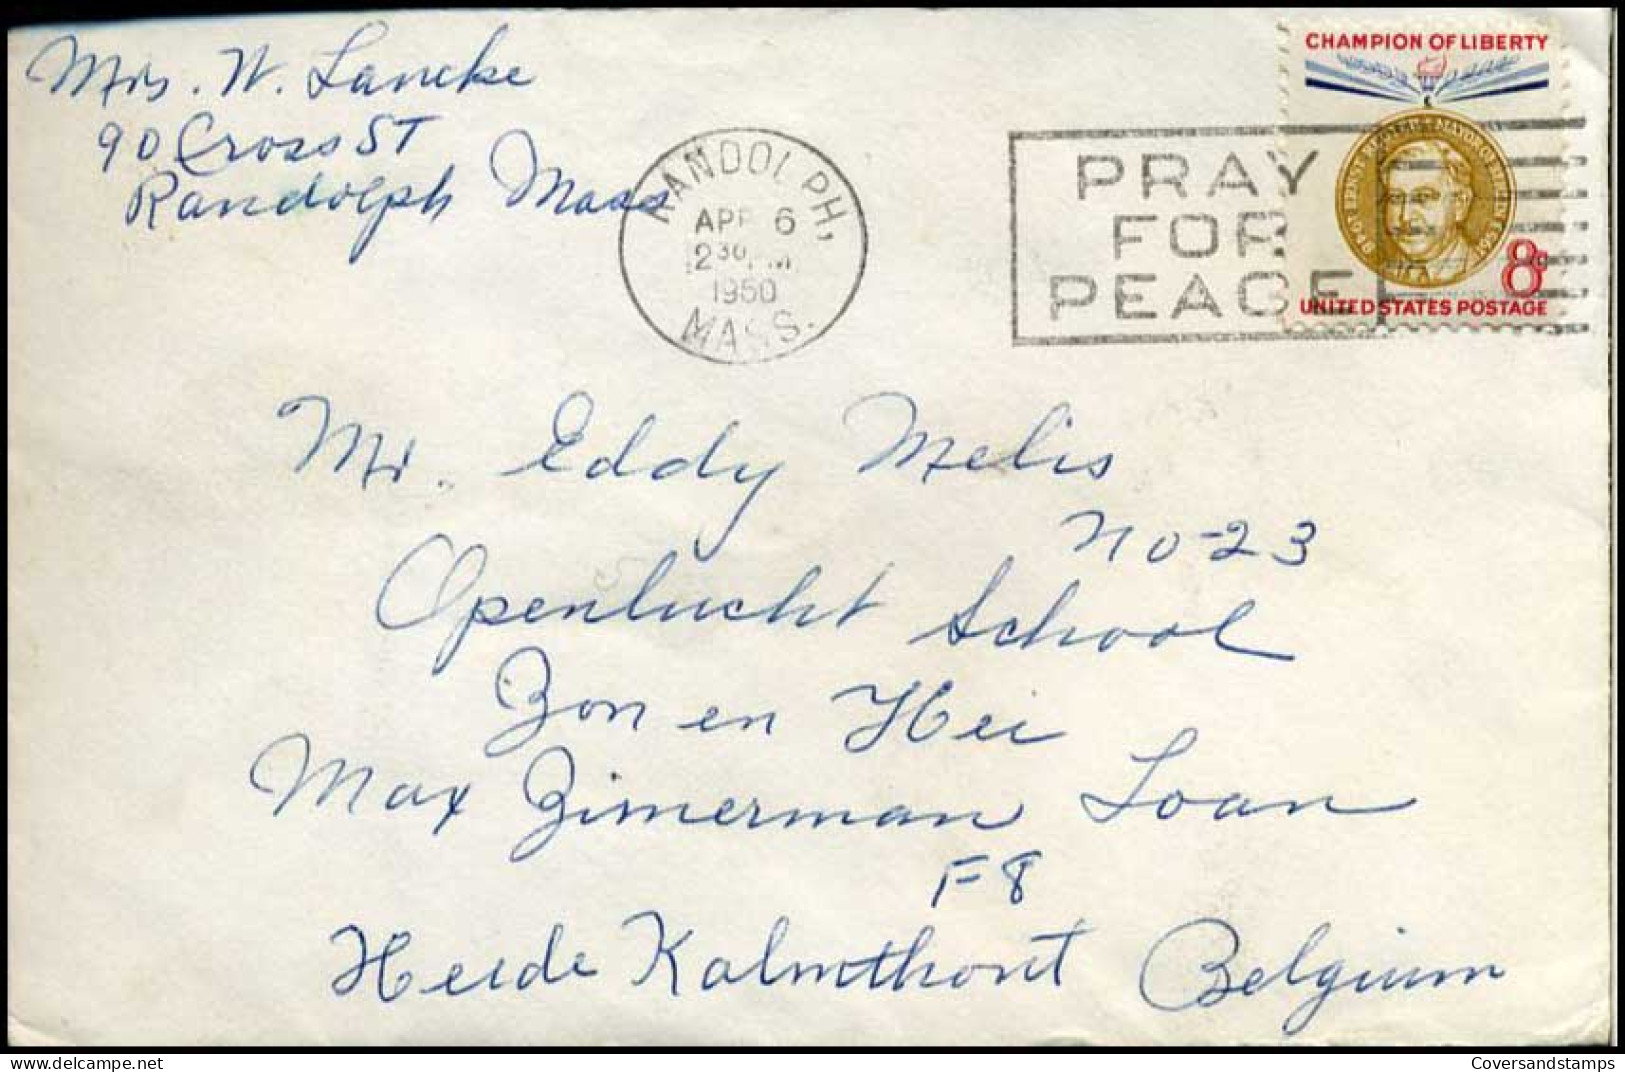 Mrs. W. Lancke
90 Cross ST
Randolph Mass
RANDOLPH,
APR 6
2 30 PM
1960
MASS.
PRAY
FOR
PEACE
CHAMPION OF LIBERTY
8¢
UNITED STATES POSTAGE
Mr. Eddy Melis
No-23
Openlucht School
Zon en Hei
Max Zimerman Loan
F8
Heide Kalmthout Belgium
Coversandstamps